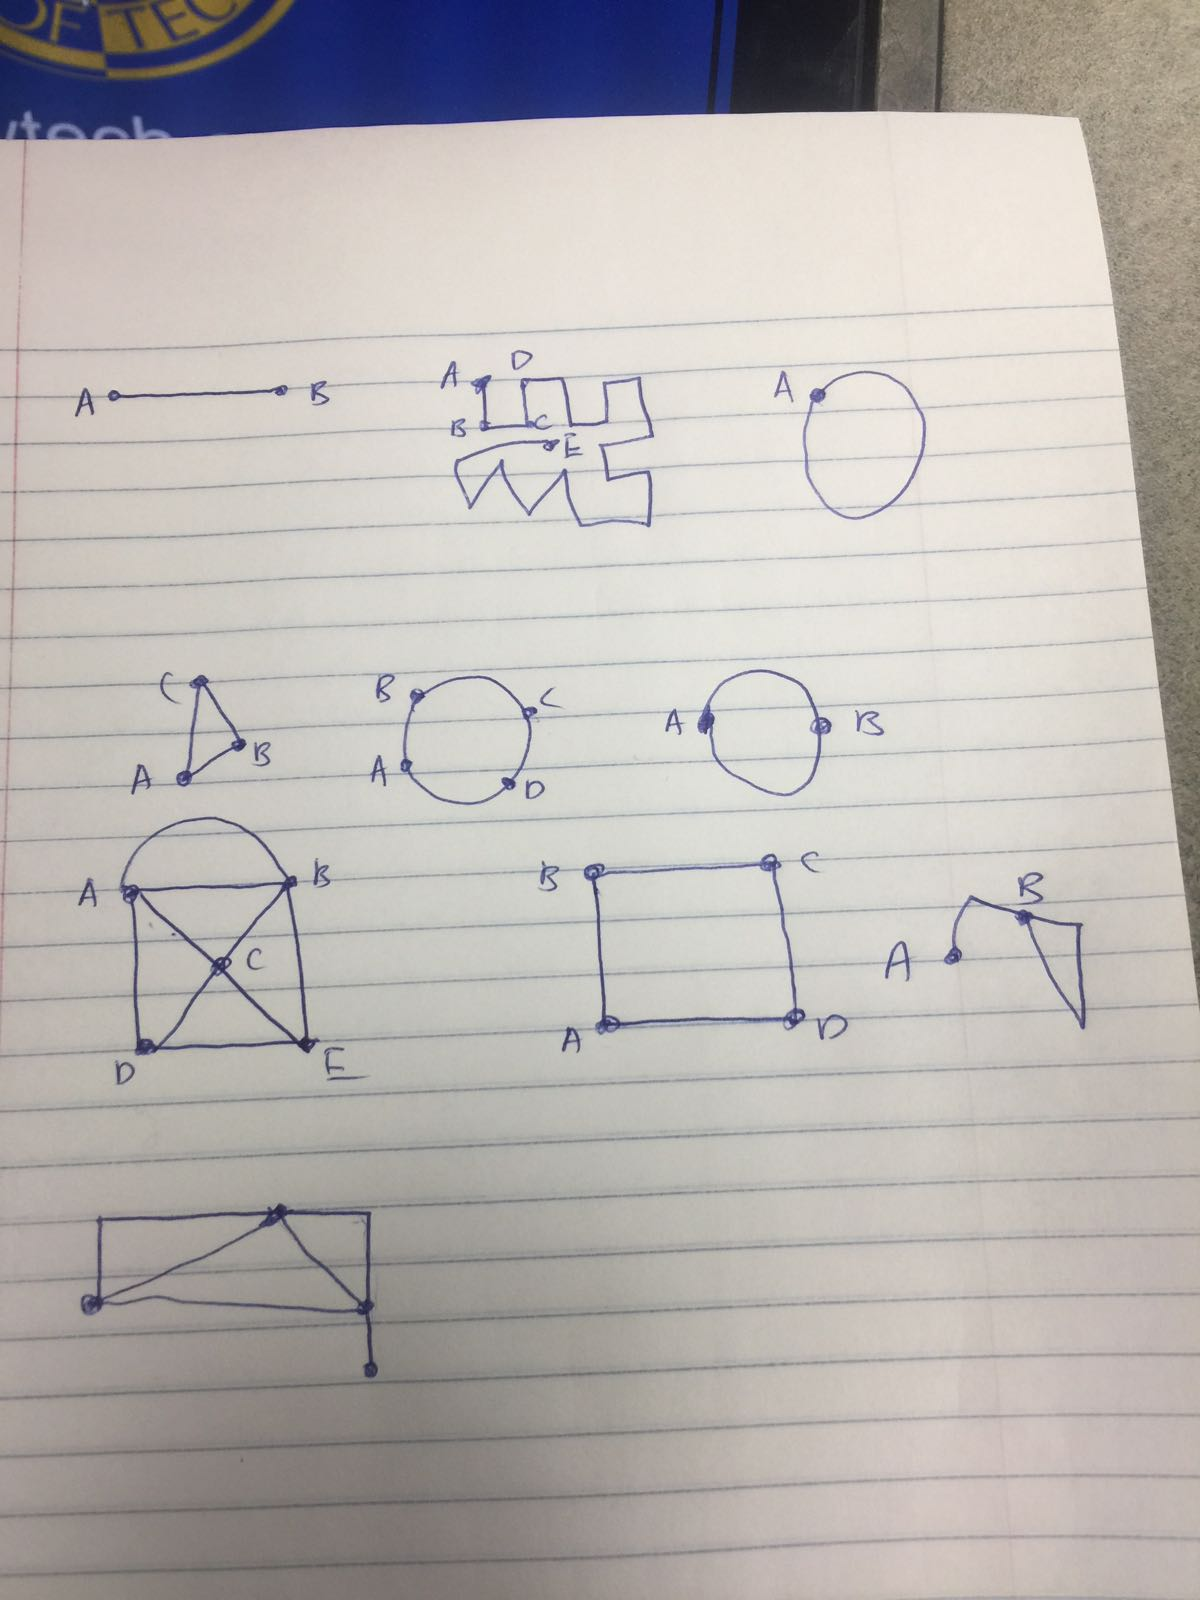 OF TEC
A B
A D B C E
A
C B A
B C A D
A B
A B C D E
B C A D
A B